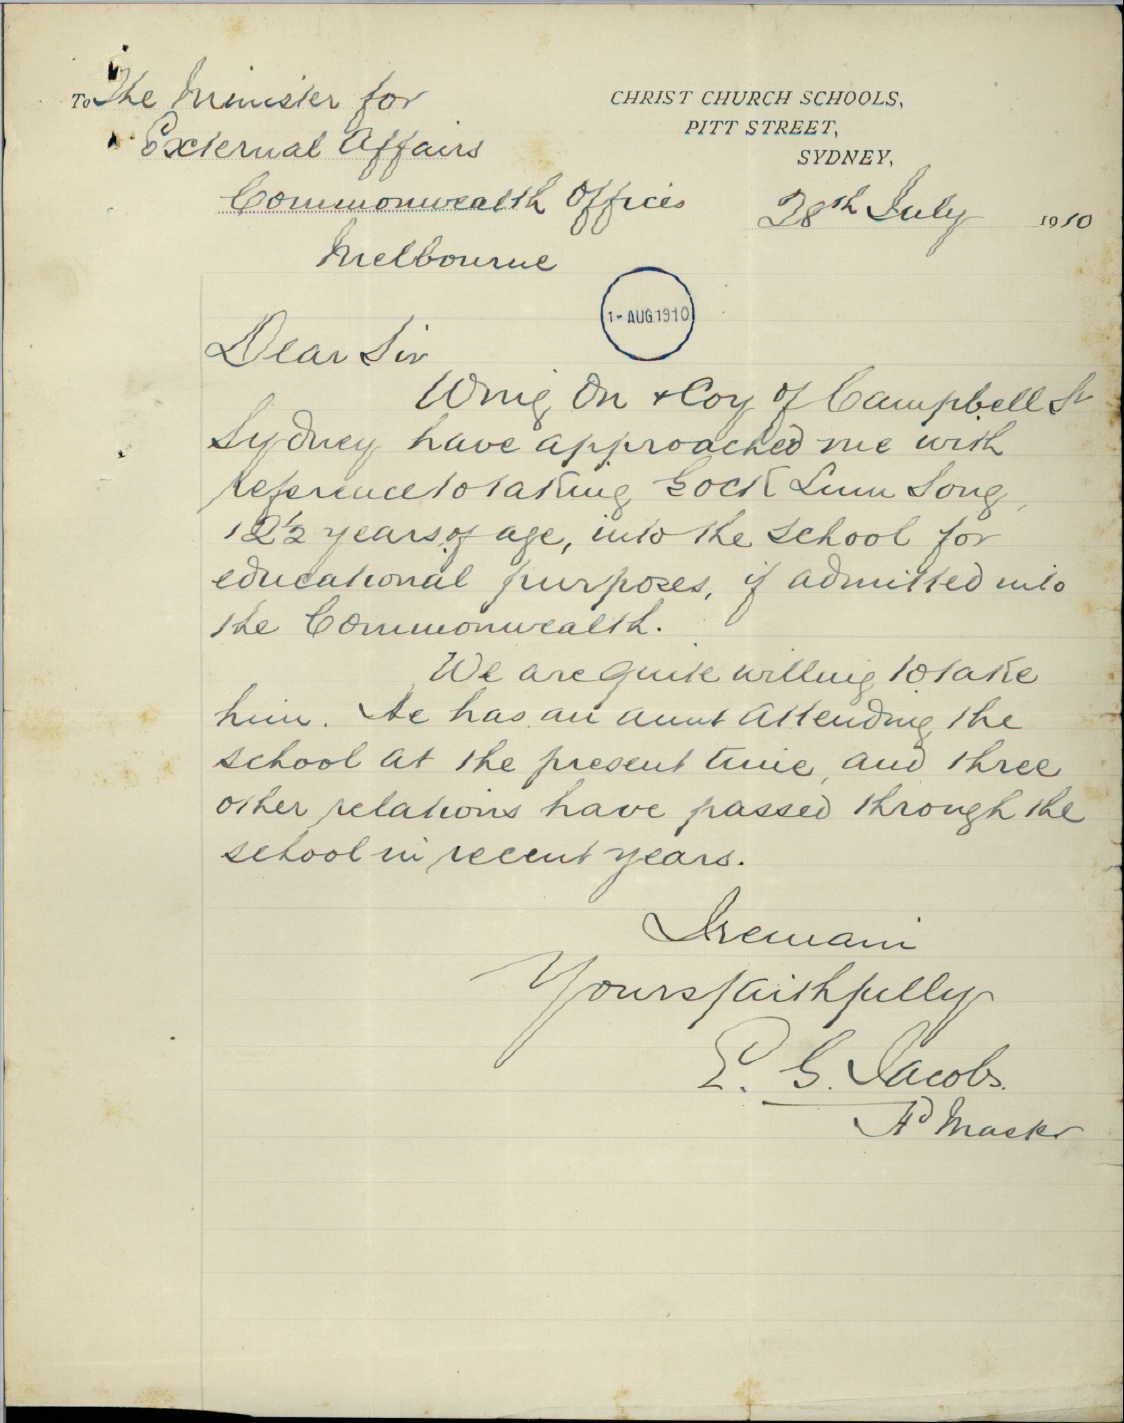 To The Minister for
External Affairs
Commonwealth Offices
Melbourne
CHRIST CHURCH SCHOOLS,
PITT STREET,
SYDNEY,
28th July 1910
1- AUG.1910
Dear Sir
Wing On & Coy of Campbell St
Sydney have approached me with
reference to taking Gock Lum Song,
12½ years of age, into the school for
educational purposes, if admitted into
the Commonwealth.
We are quite willing to take
him. He has an aunt attending the
school at the present time, and three
other relations have passed through the
school in recent years.
I remain
Yours faithfully
E. G. Jacobs.
Hd Master